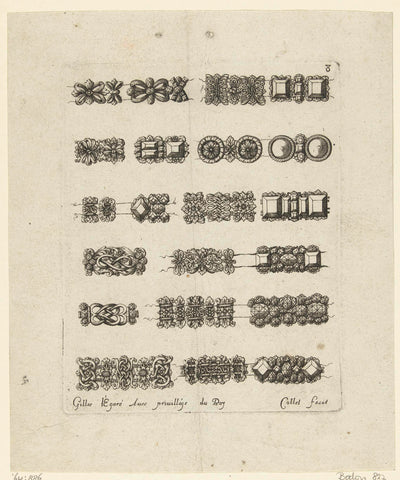 2
Gilles l'Egaré Avec privillege du Roy Collet fecit
Bodon 822